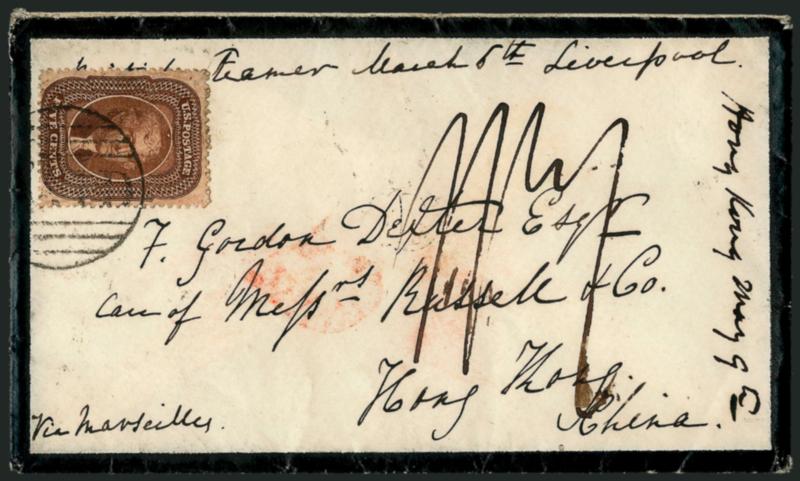 British Steamer March 6th Liverpool.
U.S. POSTAGE
FIVE CENTS
F. Gordon Dexter Esqr
Care of Messrs Russell & Co.
Hong Kong.
China.
Via Marseilles.
Hong Kong May 9th